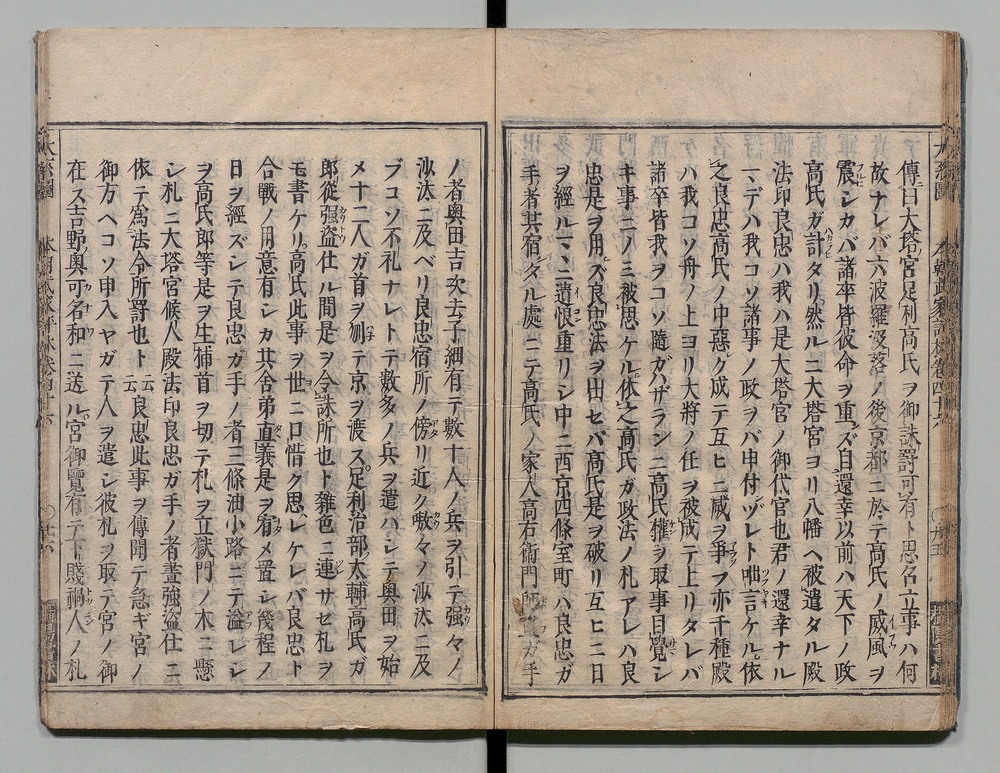 傳曰大塔宮足利高氏ヲ御誅罸可有ト思召立事ハ何
故ナレバ六波羅沒落ノ後京都ニ於テ高氏ノ威風ヲ
震シカバ諸卒皆彼命ヲ重ズ自還幸以前ハ天下ノ政
高氏ガ計タリ然ルニ大塔宮ヨリ八幡ヘ被遣タル殿
法印良忠ハ我ハ是大塔宮ノ御代官也君ノ還幸ナル
マデハ我コソ諸事ノ政ヲバ申付ヅレト咄言ケル依
之良忠高氏ノ中惡ク成テ互ヒニ威ヲ爭フ亦千種殿
ハ我コソ舟ノ上ヨリ大將ノ任ヲ被成テ上リタレバ
諸卒皆我ヲコソ隨ガハザランニ高氏權ヲ取事目覺シ
キ事ニノミ被思ケル依之高氏ガ政法ノ札アレハ良
忠是ヲ用ズ良忠法ヲ出セバ高氏是ヲ破リ互ヒニ日
ヲ經ルマヽニ遺恨重リシ中ニ西京四條室町ハ良忠ガ
手者其宿タル處ニテ高氏ノ家人高右衛門師直ガ手
ノ者奧田吉次去子細有テ數十人ノ兵ヲ引テ强々ノ
沙汰ニ及ベリ良忠宿所ノ傍リ近ク嗷々ノ沙汰ニ及
ブコソ不礼ナレトテ數多ノ兵ヲ遣ハシテ奧田ヲ始
メ十二人ガ首ヲ刎テ京ヲ渡ス足利治部太輔高氏ガ
郎從强盗仕ル間是ヲ令誅所也ト雜色ニ連サセ札ヲ
モ書ケリ高氏此事ヲ世ニ口惜ク思レケレバ良忠ト
合戰ノ用意有シカ其舍弟直義是ヲ宥メ置シ幾程ノ
日ヲ經ズシテ良忠ガ手ノ者三條油小路ニテ溢レシ
ヲ高氏郎等是ヲ生捕首ヲ切テ札ヲ立獄門ノ木ニ懸
シ札ニ大塔宮候人殿法印良忠ガ手ノ者晝強盗仕ニ
依テ爲法令所罸也ト云云良忠此事ヲ傳聞テ急ギ宮ノ
御方ヘコソ申入ヤガテ人ヲ遣シ彼札ヲ取テ宮ノ御
在ス吉野奧可名和ニ送ル宮御覽有テ下賤禍人ノ札